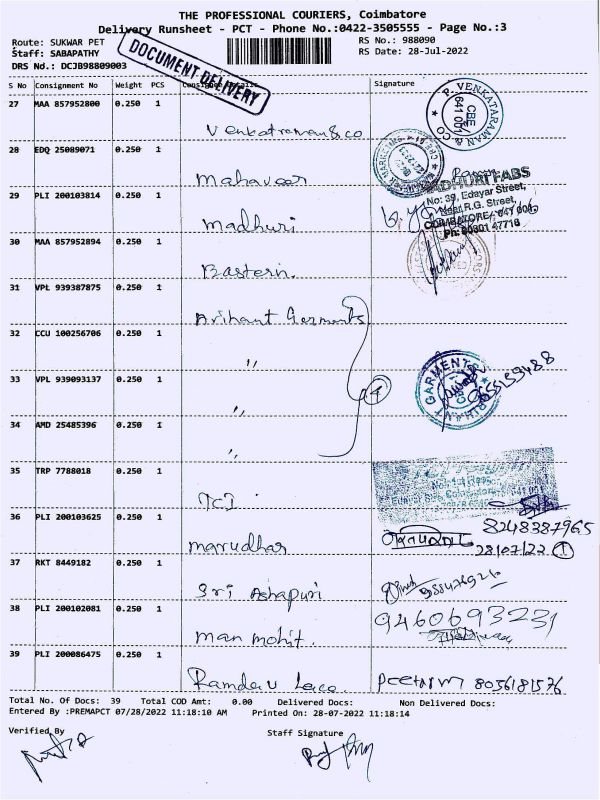 THE PROFESSIONAL COURIERS, Coimbatore
Delivery Runsheet - PCT - Phone No.:0422-3505555 - Page No.:3
Route: SUKWAR PET
RS No.: 988090
Staff: SABAPATHY
RS Date: 28-Jul-2022
DRS No.: DCJB98809003
DOCUMENT DELIVERY
S No Consignment No Weight PCS Signature
27 MAA 857952800 0.250 1 Venkatraman & co
P. VENKATARAMAN & CO
CBE
641 001
28 EDQ 25089071 0.250 1 Mahaveer
29 PLI 200103814 0.250 1 Madhuri
FABS
No: 39, Edayar Street,
Near R.G. Street,
COIMBATORE - 641 001
30 MAA 857952894 0.250 1 Eastern.
31 VPL 939387875 0.250 1 Arihant Garments
32 CCU 100256706 0.250 1 "
33 VPL 939093137 0.250 1 " 4
GARMENTS
34 AMD 25485396 0.250 1 "
35 TRP 7788018 0.250 1 TCI
36 PLI 200103625 0.250 1 marudhar 8248387965
28/07/22 1
37 RKT 8449182 0.250 1 Sri Ashapuri
38 PLI 200102081 0.250 1 man mohit. 9460693231
39 PLI 200086475 0.250 1 Ramdev Lace. 8056181576
Total No. Of Docs: 39 Total COD Amt: 0.00 Delivered Docs: Non Delivered Docs:
Entered By :PREMAPCT 07/28/2022 11:18:10 AM Printed On: 28-07-2022 11:18:14
Verified By Staff Signature